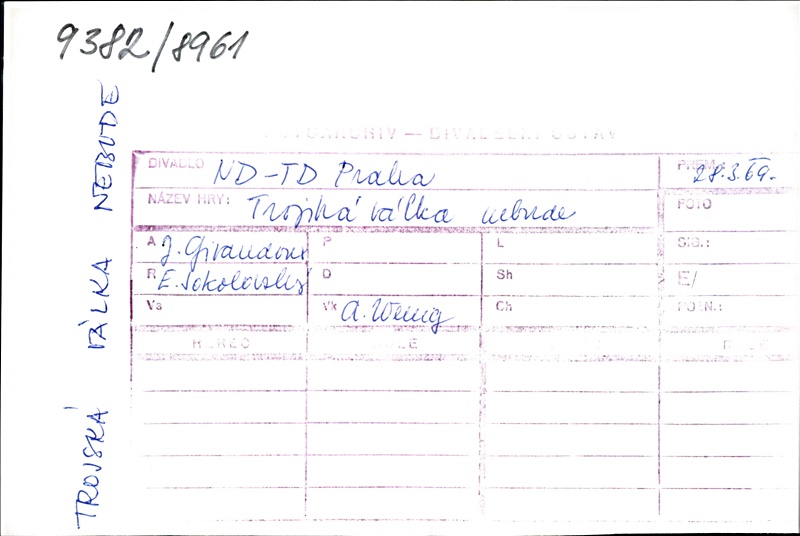 9382/8961
TROJSKÁ VÁLKA NEBUDE
FOTOARCHIV — DIVADELNÍ ÚSTAV
DIVADLO ND-TD Praha PREM.: 28.3.69.
NÁZEV HRY: Trojská válka nebude FOTO
A J. Giraudoux P L SIG.:
R E. Sokolovský D Sh E/
Vs Vk A. Wenig Ch POZN.:
HEREC ROLE